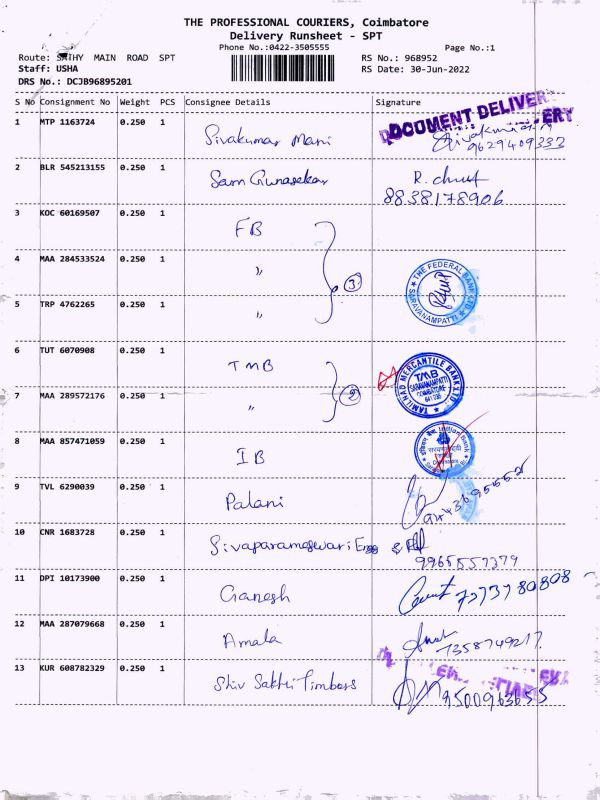 THE PROFESSIONAL COURIERS, Coimbatore
Delivery Runsheet - SPT
Phone No.:0422-3505555
Page No.:1
Route: SATHY MAIN ROAD SPT
RS No.: 968952
Staff: USHA
RS Date: 30-Jun-2022
DRS No.: DCJB96895201
S No Consignment No Weight PCS Consignee Details Signature
1 MTP 1163724 0.250 1 Sivakumar Mani
DOCUMENT DELIVERY
9629409333
2 BLR 545213155 0.250 1 Sam Gunasekar
8838178906
3 KOC 60169507 0.250 1 FB
4 MAA 284533524 0.250 1 "
THE FEDERAL BANK LTD
SARAVANAMPATTI
3
5 TRP 4762265 0.250 1 "
6 TUT 6070908 0.250 1 TMB
TAMILNAD MERCANTILE BANK LTD
TMB
SARAVANAMPATTI
COIMBATORE
641 035
2
7 MAA 289572176 0.250 1 "
8 MAA 857471059 0.250 1 IB
Indian Bank
9 TVL 6290039 0.250 1 Palani
10 CNR 1683728 0.250 1 Sivaparameswari Engg
9965557379
11 DPI 10173900 0.250 1 Ganesh
12 MAA 287079668 0.250 1 Amala
7358749217
13 KUR 608782329 0.250 1 Shiv Sakthi Timbers
9500963655